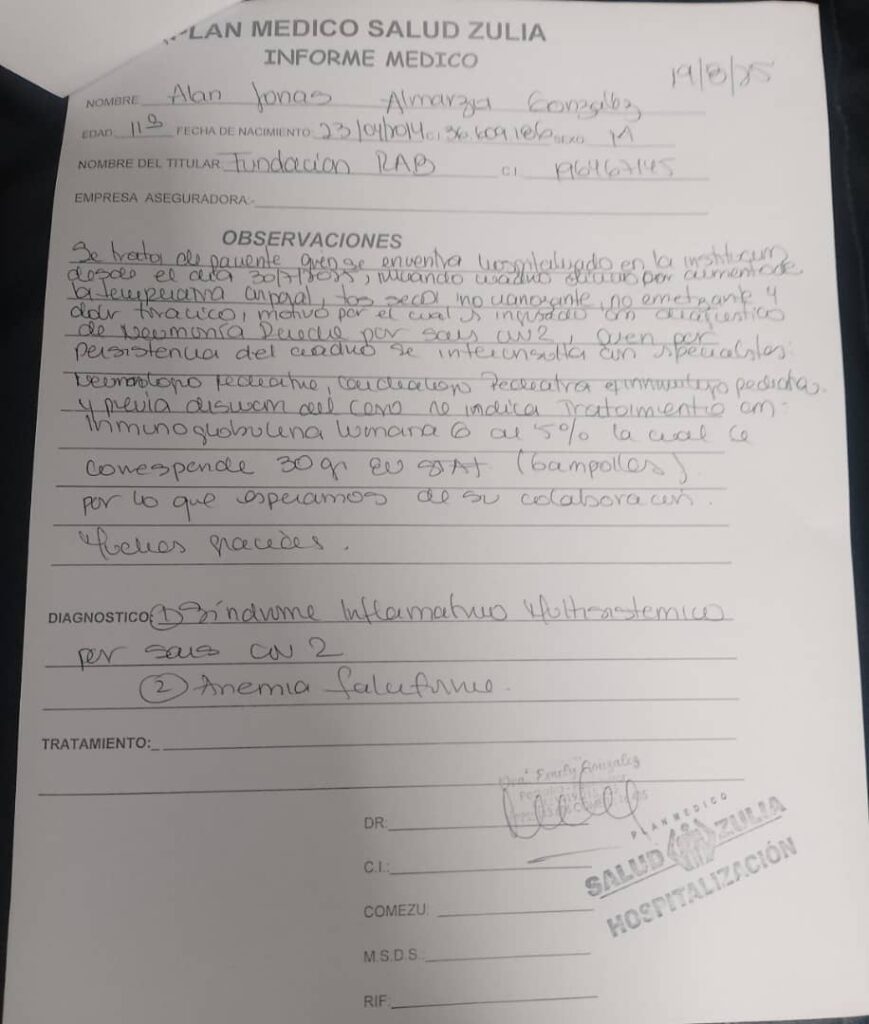 PLAN MEDICO SALUD ZULIA
INFORME MEDICO
19/8/25
NOMBRE Alan Jonas Almarza González
EDAD 11a FECHA DE NACIMIENTO 23/04/2014 C.I 36.609.186 SEXO M
NOMBRE DEL TITULAR Fundacion RAB CI
EMPRESA ASEGURADORA:
OBSERVACIONES
Se trata de paciente quien se encuentra hospitalizado en la institucion
desde el dia 30/7/2025, iniciando cuadro clinico por aumento de
la temperatura corporal, tos seca no cianozante, no emetizante y
dolor toracico, motivo por el cual es ingresado con diagnostico
de Neumonía Derecha por sars cov2, quien por
persistencia del cuadro se interconsulta con especialistas:
Neumologo pediatra, cardiologo pediatra e inmunologo pediatra
y previa discusion del caso se indica Tratamiento con:
Inmunoglobulina humana G al 5% la cual le
corresponde 30 gr EV STAT (6 ampollas)
por lo que esperamos de su colaboracion.
Muchas gracias.
DIAGNOSTICO: 1 Síndrome Inflamatorio Multisistemico
por sars cov 2
2 Anemia falciforme.
TRATAMIENTO:
González
DR:
C.I.:
COMEZU:
M.S.D.S.:
RIF:
PLAN MEDICO
SALUD ZULIA
HOSPITALIZACIÓN